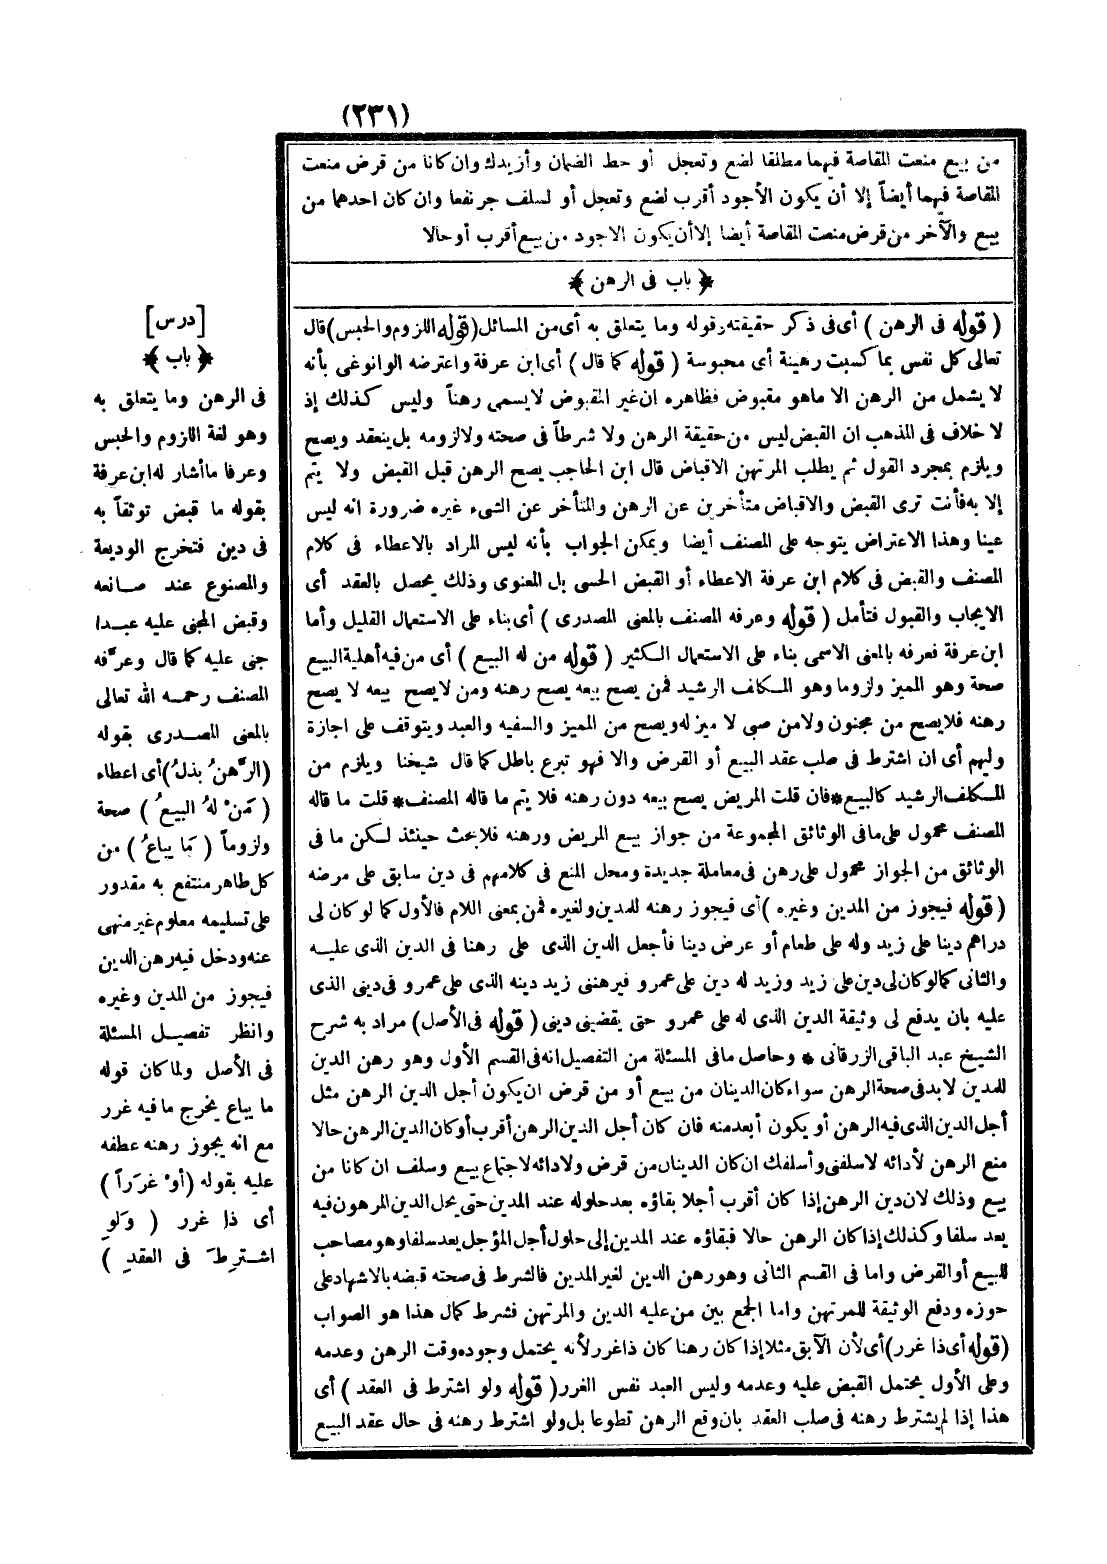 (٢٣١)
من بيع منعت المقاصة فيهما مطلقا لضع وتعجل أو حط الضمان وأزيدك وان كانا من قرض منعت
المقاصة فيهما أيضاً إلا أن يكون الأجود أقرب لضع وتعجل أو لسلف جر نفعا وان كان احدهما من
بيع والآخر من قرض منعت المقاصة أيضا إلا أن يكون الاجود من بيع أقرب أو حالا
﴿ باب فى الرهن ﴾
( قوله فى الرهن ) أى فى ذكر حقيقته وقوله وما يتعلق به أى من المسائل (قوله اللزوم والحبس) قال
تعالى كل نفس بما كسبت رهينة أى محبوسة ( قوله كما قال ) أى ابن عرفة واعترضه الوانوغى بأنه
لا يشمل من الرهن الا ماهو مقبوض فظاهره ان غير المقبوض لا يسمى رهناً وليس كذلك إذ
لا خلاف فى المذهب ان القبض ليس من حقيقة الرهن ولا شرطاً فى صحته ولا لزومه بل ينعقد ويصح
ويلزم بمجرد القول ثم يطلب المرتهن الاقباض قال ابن الحاجب يصح الرهن قبل القبض ولا يتم
إلا به فأنت ترى القبض والاقباض متأخرين عن الرهن والمتأخر عن الشىء غيره ضرورة انه ليس
عينا وهذا الاعتراض يتوجه على المصنف أيضا ويمكن الجواب بأنه ليس المراد بالاعطاء فى كلام
المصنف والقبض فى كلام ابن عرفة الاعطاء أو القبض الحسى بل المعنوى وذلك يحصل بالعقد أى
الايجاب والقبول فتأمل ( قوله وعرفه المصنف بالمعنى المصدرى ) أى بناء على الاستعمال القليل وأما
ابن عرفة فعرفه بالمعنى الاسمى بناء على الاستعمال الكثير ( قوله من له البيع ) أى من فيه أهلية البيع
صحة وهو المميز ولزوما وهو المكلف الرشيد فمن يصح بيعه يصح رهنه ومن لا يصح بيعه لا يصح
رهنه فلا يصح من مجنون ولا من صبى لا ميز له ويصح من المميز والسفيه والعبد ويتوقف على اجازة
وليهم أى ان اشترط فى صلب عقد البيع أو القرض والا فهو تبرع باطل كما قال شيخنا ويلزم من
المكلف الرشيد كالبيع * فان قلت المريض يصح بيعه دون رهنه فلا يتم ما قاله المصنف * قلت ما قاله
المصنف محمول على مافى الوثائق المجموعة من جواز بيع المريض ورهنه فلا بحث حينئذ لكن ما فى
الوثائق من الجواز محمول على رهن فى معاملة جديدة ومحل المنع فى كلامهم فى دين سابق على مرضه
( قوله فيجوز من المدين وغيره ) أى فيجوز رهنه للمدين ولغيره فمن بمعنى اللام فالأول كما لو كان لى
دراهم دينا على زيد وله على طعام أو عرض دينا فأجعل الدين الذى على رهنا فى الدين الذى عليه
والثانى كما لو كان لى دين على زيد وزيد له دين على عمرو فيرهننى زيد دينه الذى على عمرو فى دينى الذى
عليه بان يدفع لى وثيقة الدين الذى له على عمرو حتى يقضينى دينى ( قوله فى الأصل) مراد به شرح
الشيخ عبد الباقى الزرقانى * وحاصل مافى المسئلة من التفصيل انه فى القسم الأول وهو رهن الدين
للمدين لا بد فى صحة الرهن سواء كان الدينان من بيع أو من قرض ان يكون أجل الدين الرهن مثل
أجل الدين الذى فيه الرهن أو يكون أبعد منه فان كان أجل الدين الرهن أقرب أو كان الدين الرهن حالا
منع الرهن لأدائه لاسلفنى وأسلفك ان كان الدينان من قرض ولادائه لاجتماع بيع وسلف ان كانا من
بيع وذلك لان دين الرهن إذا كان أقرب أجلا بقاؤه بعد حلوله عند المدين حتى يحل الدين المرهون فيه
يعد سلفا وكذلك إذا كان الرهن حالا فبقاؤه عند المدين إلى حلول أجل المؤجل يعد سلفا وهو مصاحب
للبيع أو القرض واما فى القسم الثانى وهو رهن الدين لغير المدين فالشرط فى صحته قبضه بالاشهاد على
حوزه ودفع الوثيقة للمرتهن واما الجمع بين من عليه الدين والمرتهن فشرط كمال هذا هو الصواب
(قوله أى ذا غرر) أى لأن الآبق مثلا إذا كان رهنا كان ذا غرر لأنه يحتمل وجوده وقت الرهن وعدمه
وعلى الأول يحتمل القبض عليه وعدمه وليس العبد نفس الغرر ( قوله ولو اشترط فى العقد ) أى
هذا إذا لم يشترط رهنه فى صلب العقد بان وقع الرهن تطوعا بل ولو اشترط رهنه فى حال عقد البيع
[درس]
﴿ باب ﴾
فى الرهن وما يتعلق به
وهو لغة اللزوم والحبس
وعرفا ما أشار له ابن عرفة
بقوله ما قبض توثقاً به
فى دين فتخرج الوديعة
والمصنوع عند صانعه
وقبض المجنى عليه عبدا
جنى عليه كما قال وعرَّفه
المصنف رحمه الله تعالى
بالمعنى المصدرى بقوله
(الرَّهنُ بذلُ) أى اعطاء
( مَنْ لهُ البيعُ ) صحة
ولزوماً ( مَا يباعُ ) من
كل طاهر منتفع به مقدور
على تسليمه معلوم غير منهى
عنه ودخل فيه رهن الدين
فيجوز من المدين وغيره
وانظر تفصيل المسئلة
فى الأصل ولما كان قوله
ما يباع يخرج ما فيه غرر
مع انه يجوز رهنه عطفه
عليه بقوله (أوْ غرَراً )
أى ذا غرر ( ولَو
اشترِطَ فى العقدِ )